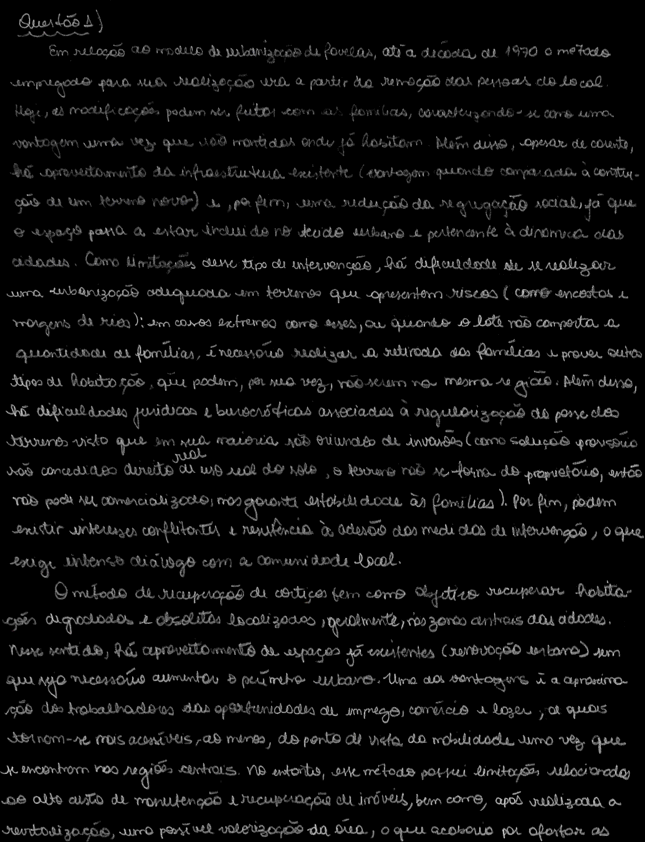 Questão 1)
Em relação ao modelo de urbanização de favelas, até a década de 1970 o método
empregado para sua realização era a partir da remoção das pessoas do local.
Hoje, as modificações podem ser feitas com as famílias, caracterizando-se como uma
vantagem uma vez que são mantidas onde já habitam. Além disso, apesar de
há aproveitamento da infraestrutura existente (vantagem quando comparada à constru-
ção de um terreno novo) e, por fim, uma redução da segregação social, já que
o espaço passa a estar incluido no tecido urbano e pertencente à dinâmica das
cidades. Como limitações desse tipo de intervenção, há dificuldade de se realizar
uma urbanização adequada em terrenos que apresentem riscos (como encostas e
margens de rios): em casos extremos como esses, ou quando o lote não comporta a
quantidade de famílias, é necessário realizar a retirada das famílias e prover outros
tipos de habitação, que podem, por sua vez, não serem na mesma região. Além disso,
há dificuldades jurídicas e burocráticas associadas à regularização da posse dos
terrenos visto que em sua maioria são oriundos de invasões (como solução provisória
real
são concedidos direito de uso real do solo, o terreno não se torna do proprietário, então
não pode ser comercializado, mas garante estabilidade às famílias). Por fim, podem
existir interesses conflitantes e resistência à adesão das medidas de intervenção, o que
exige intenso diálogo com a comunidade local.
O método de recuperação de cortiços tem como objetivo recuperar habita-
ções degradadas e obsoletas localizadas, geralmente, nas zonas centrais das cidades.
Nesse sentido, há aproveitamento de espaços já existentes (renovação urbana) sem
que seja necessário aumentar o perímetro urbano. Uma das vantagens é a aproxima
ção dos trabalhadores das oportunidades de emprego, comércio e lazer, as quais
tornam-se mais acessíveis, ao menos, do ponto de vista da mobilidade uma vez que
se encontram nas regiões centrais. No entanto, esse método possui limitações relacionadas
ao alto custo de manutenção e recuperação de imóveis, bem como, após realizada a
revitalização, uma possível valorização da área, o que acabaria por afastar as